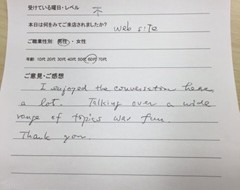 受けている曜日・レベル 不
本日は何をみてご来店されましたか?
web site
ご職業性別 男性・女性
年齢 10代 20代 30代 40代 50代 60代 70代
ご意見・ご感想
I enjoyed the conversation here
a lot. Talking over a wide
range of topics was fun.
Thank you.